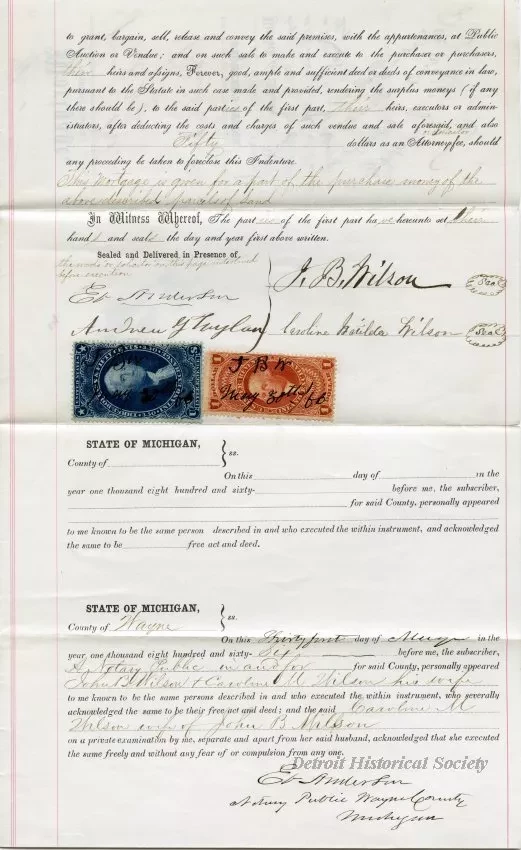 to grant, bargain, sell, release and convey the said premises, with the appurtenances, at Public
Auction or Vendue; and on such sale to make and execute to the purchaser or purchasers,
their heirs and assigns, Forever, good, ample and sufficient deed or deeds of conveyance in law,
pursuant to the Statute in such case made and provided, rendering the surplus moneys (if any
there should be), to the said parties of the first part, Their heirs, executors or admin-
istrators, after deducting the costs and charges of such vendue and sale aforesaid, and also
or solicitor
Fifty dollars as an Attorney fee, should
any proceeding be taken to foreclose this Indenture.
This Mortgage is given for a part of the purchase money of the
above described parcels of land
In Witness Whereof, The parties of the first part have hereunto set their
hands and seals the day and year first above written.
Sealed and Delivered in Presence of
the words or solicitor on this page interlined
before execution
J. B. Wilson Seal
Ed Anderson
Andrew G Caroline Matilda Wilson Seal
J B W
May 31st 66
STATE OF MICHIGAN,
County of ss.
On this day of in the
year one thousand eight hundred and sixty- before me, the subscriber,
for said County, personally appeared
to me known to be the same person described in and who executed the within instrument, and acknowledged
the same to be free act and deed.
STATE OF MICHIGAN,
County of Wayne ss.
On this Thirty first day of May in the
year one thousand eight hundred and sixty-Six before me, the subscriber,
A Notary Public in and for for said County, personally appeared
John B Wilson & Caroline M Wilson his wife
to me known to be the same persons described in and who executed the within instrument, who severally
acknowledged the same to be their free act and deed; and the said Caroline M
Wilson wife of John B Wilson
on a private examination by me, separate and apart from her said husband, acknowledged that she executed
the same freely and without any fear of or compulsion from any one.
Detroit Historical Society
Ed Anderson
Notary Public Wayne County
Michigan